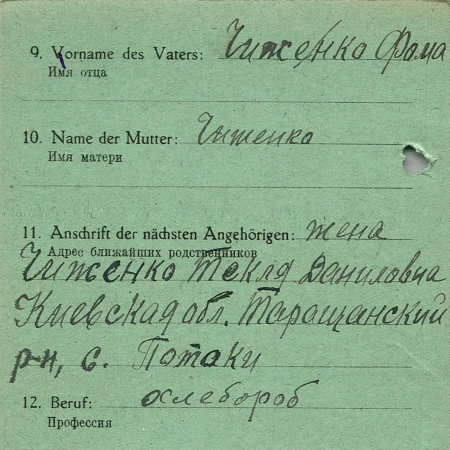 9. Vorname des Vaters: Чиженко Фома
Имя отца
10. Name der Mutter: Чиженко
Имя матери
11. Anschrift der nächsten Angehörigen: жена
Адрес ближайших родственников
Чиженко Текля Даниловна
Киевская обл. Таращанский
р-н, с. Потоки
12. Beruf: хлебороб
Профессия